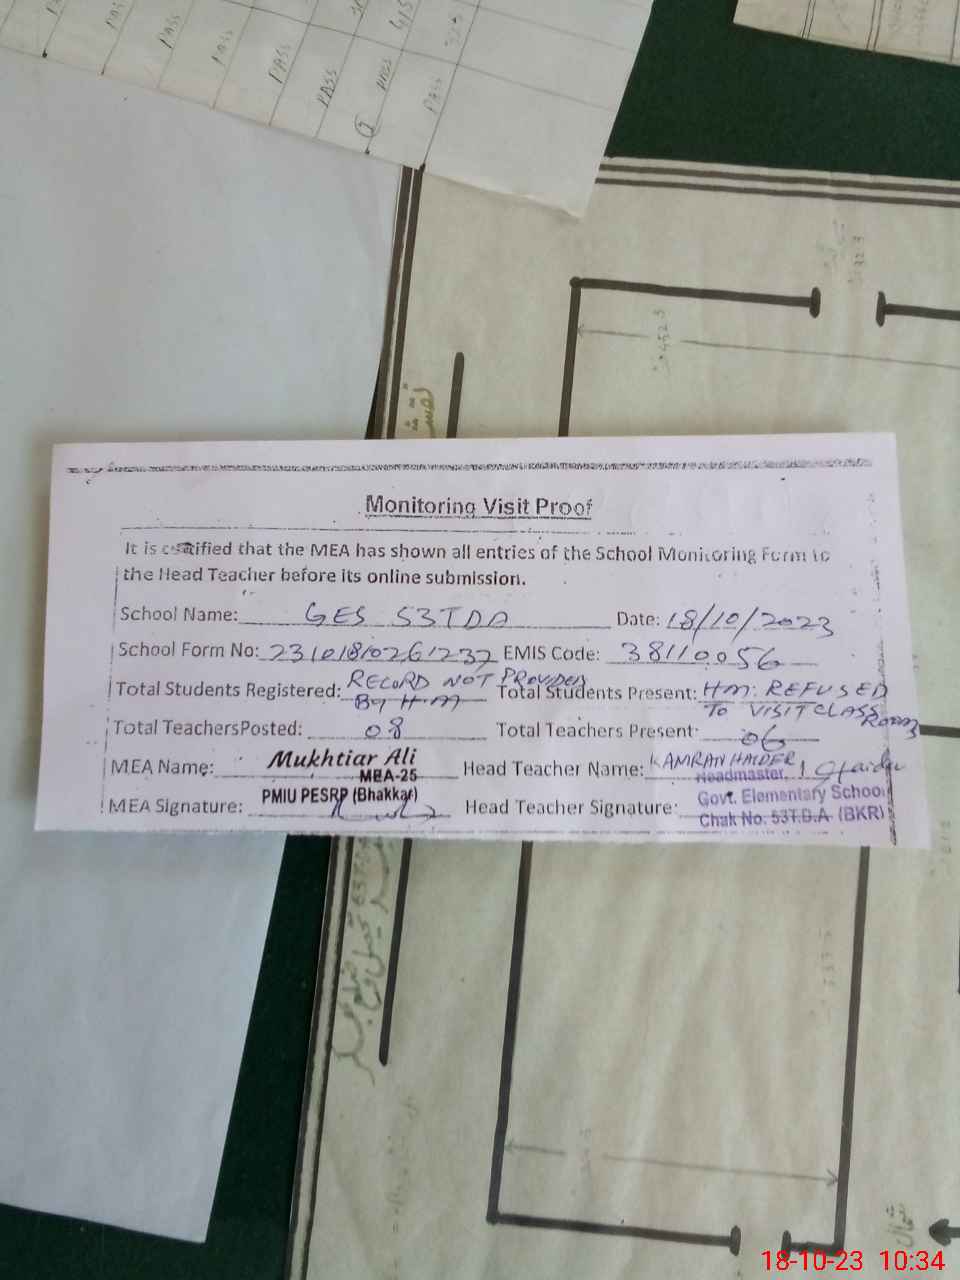 PASS
PASS
PASS
PASS
PASS
PASS
PASS
Monitoring Visit Proof
It is certified that the MEA has shown all entries of the School Monitoring Form to
the Head Teacher before its online submission.
School Name: GES 53TDA Date: 18/10/2023
School Form No: EMIS Code: 38110056
Total Students Registered: RECORD NOT PROVIDED By H.M Total Students Present: H.M: REFUSED TO VISIT CLASS ROOMS
Total TeachersPosted: 08 Total Teachers Present: 06
MEA Name: Mukhtiar Ali Head Teacher Name: KAMRAN HAIDER
MEA-25 Headmaster,
MEA Signature: PMIU PESRP (Bhakkar) Head Teacher Signature: Govt. Elementary School
Chak No. 53T.D.A (BKR)
شمال
18-10-23 10:34